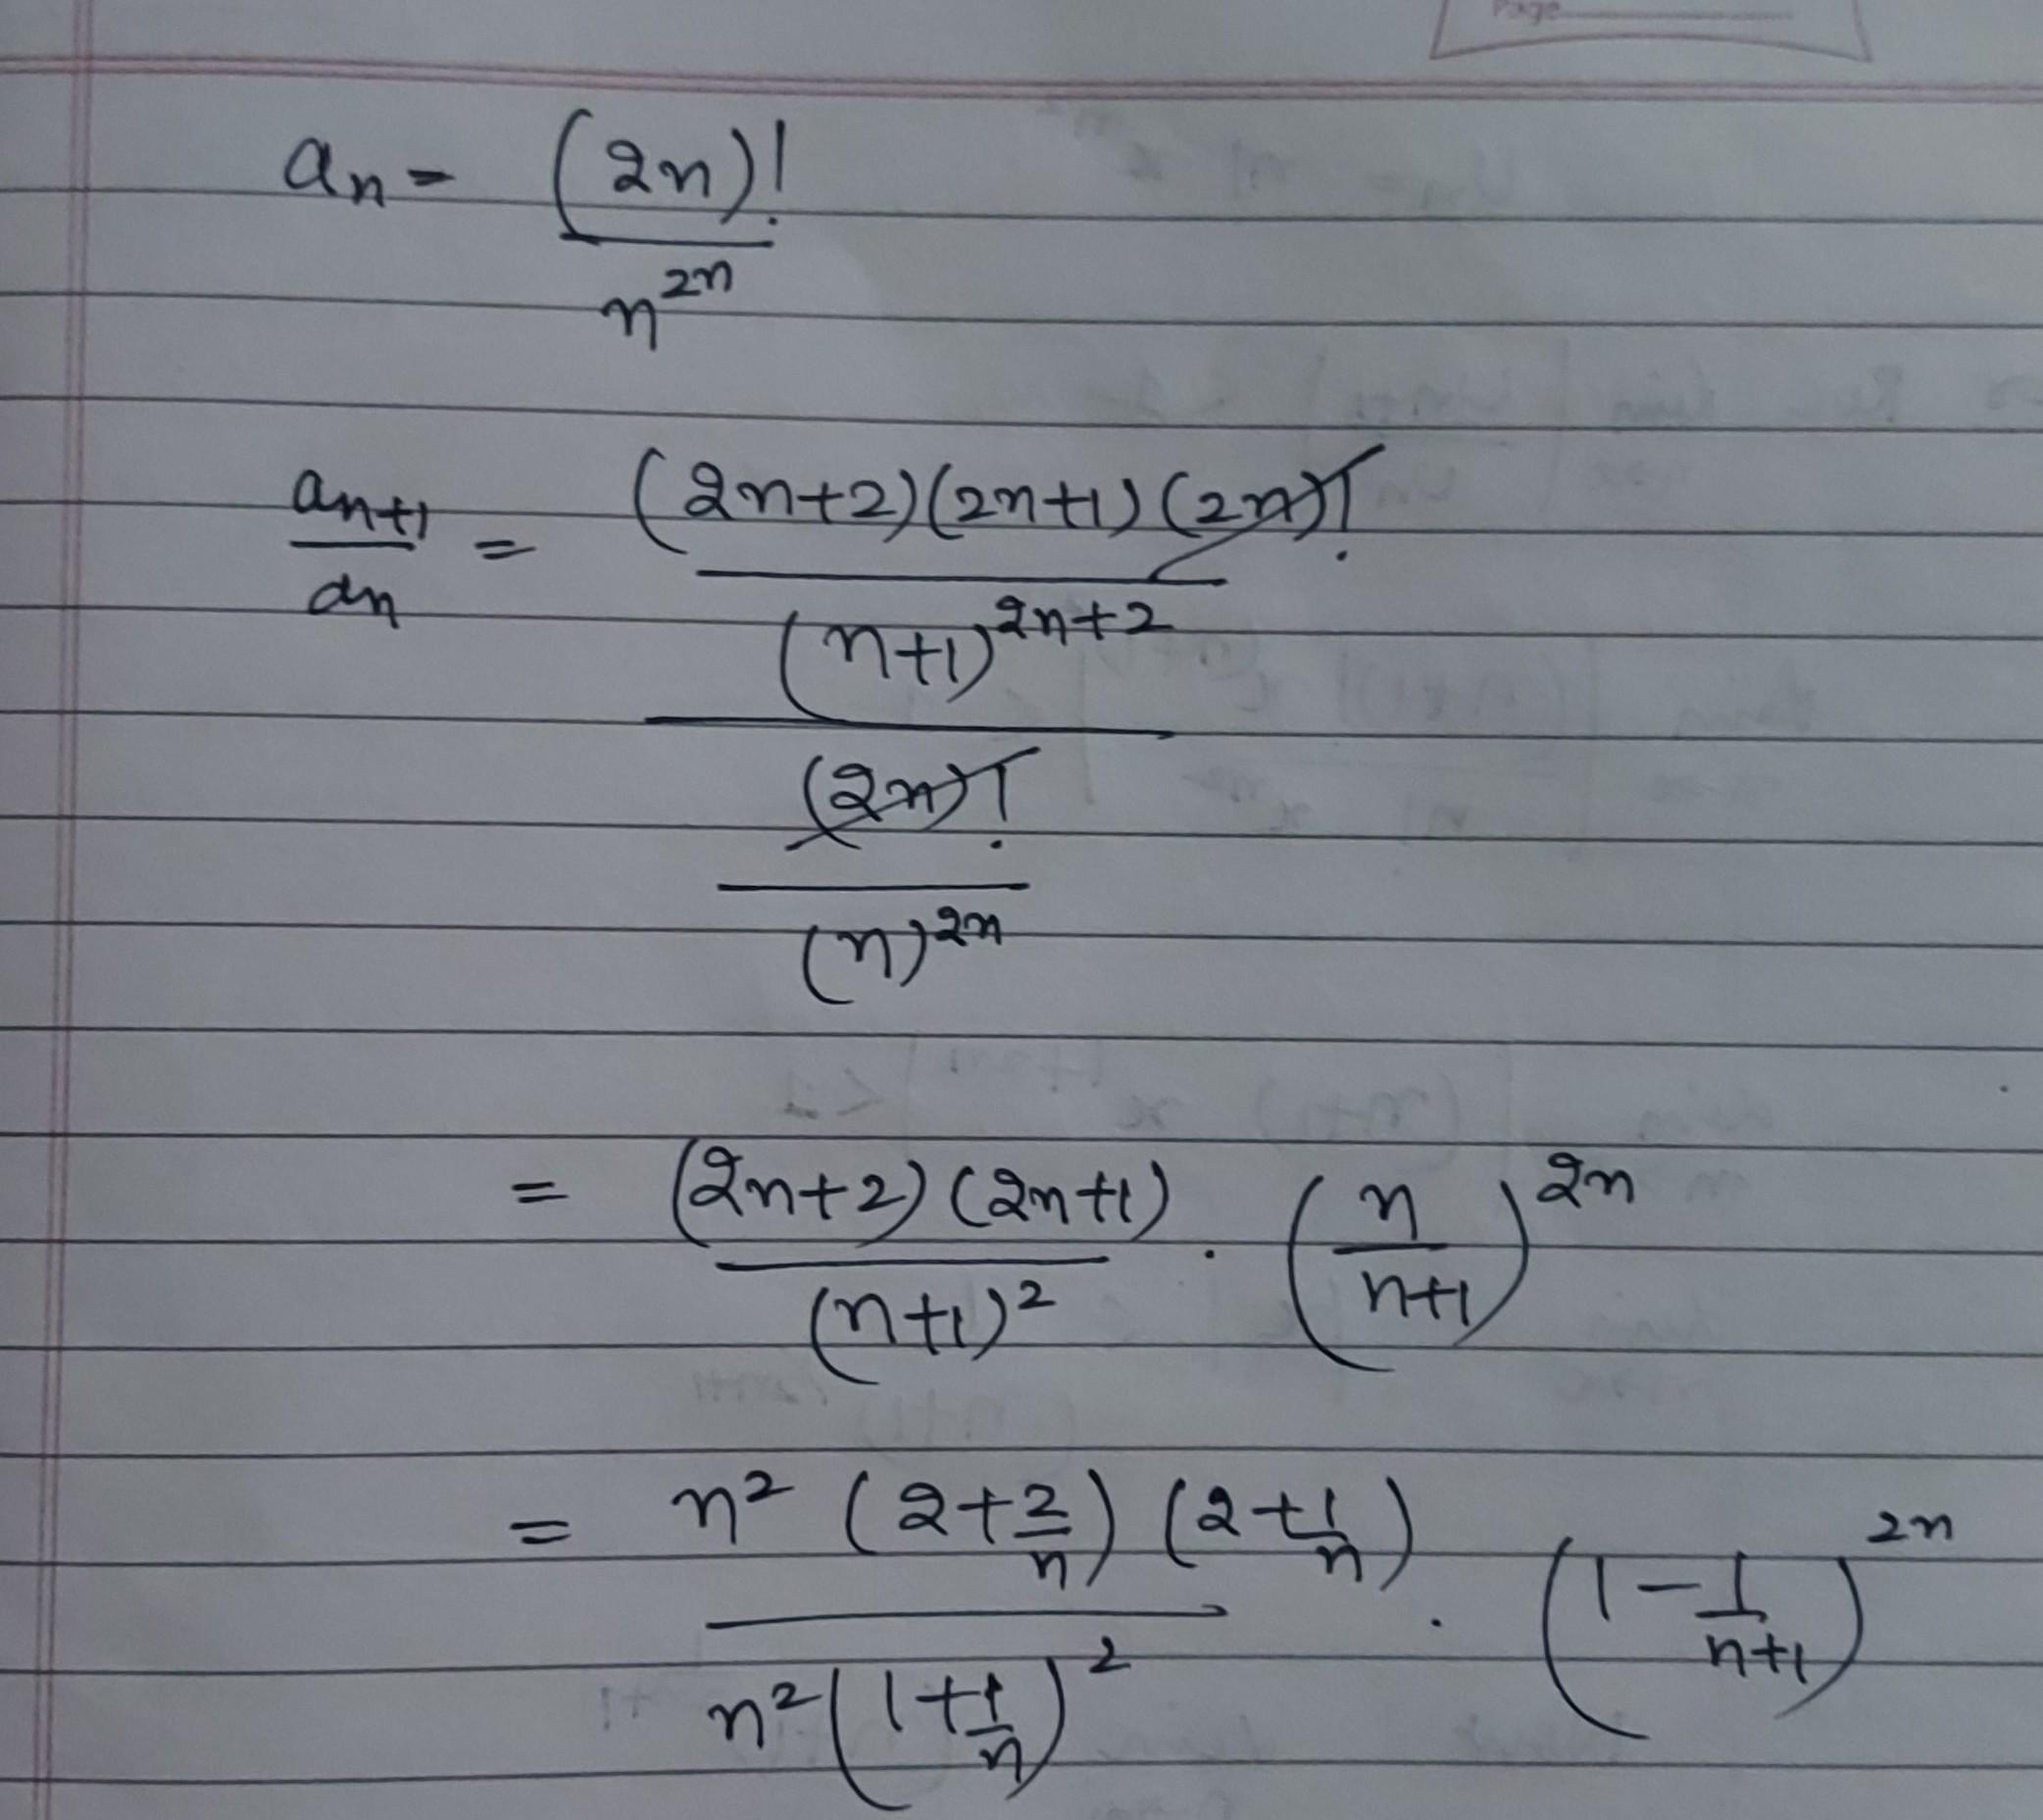 Page
aₙ = (2n)! / n²ⁿ
aₙ₊₁ / aₙ = ((2n+2)(2n+1)(2n)! / (n+1)²ⁿ⁺²) / ((2n)! / (n)²ⁿ)
= (2n+2)(2n+1) / (n+1)² . (n / n+1)²ⁿ
= n² (2+2/n) (2+1/n) / n² (1+1/n)² . (1 - 1/n+1)²ⁿ